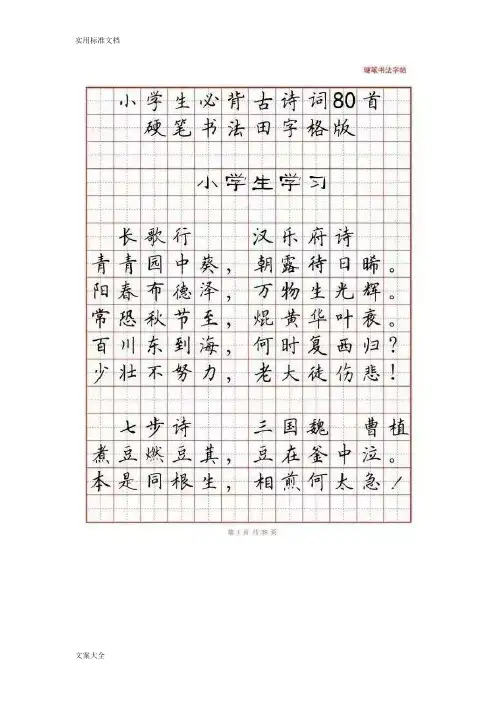 实用标准文档
硬笔书法字帖
小学生必背古诗词80首
硬笔书法田字格版
小学生学习
长歌行 汉乐府诗
青青园中葵，朝露待日晞。
阳春布德泽，万物生光辉。
常恐秋节至，焜黄华叶衰。
百川东到海，何时复西归？
少壮不努力，老大徒伤悲！
七步诗 三国魏 曹植
煮豆燃豆萁，豆在釜中泣。
本是同根生，相煎何太急！
第 1 页 共 页
文案大全